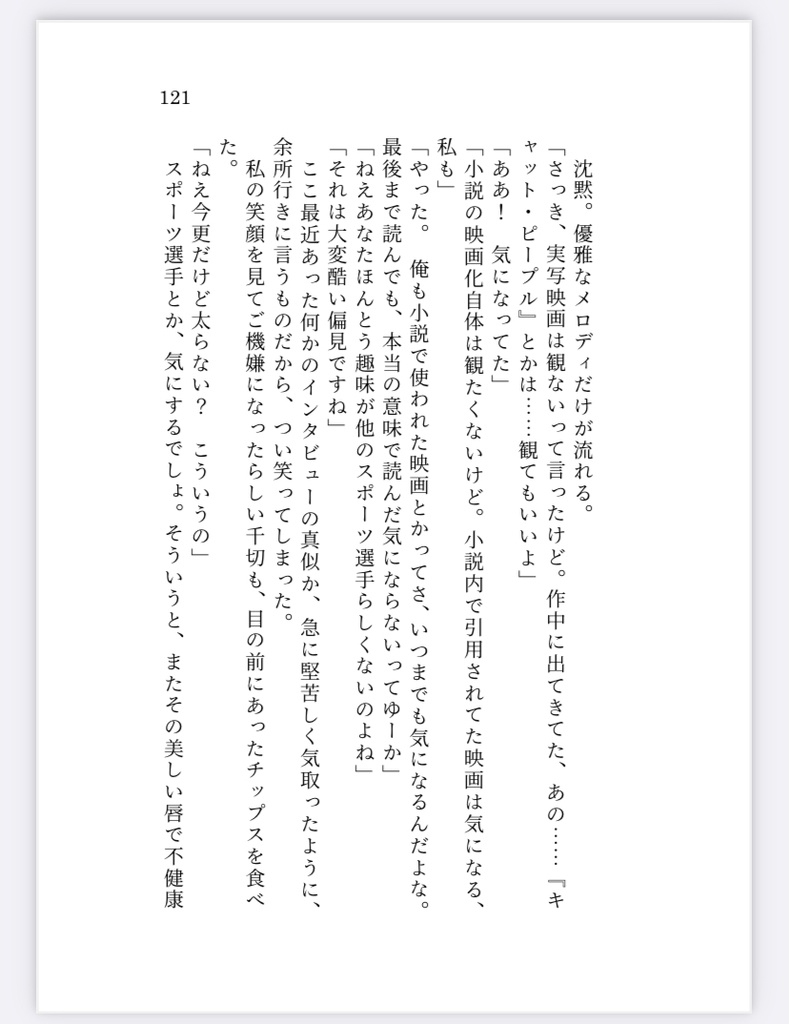 121
沈黙。優雅なメロディだけが流れる。
「さっき、実写映画は観ないって言ったけど。作中に出てきてた、あの……『キ
ャット・ピープル』とかは……観てもいいよ」
「ああ！　気になってた」
「小説の映画化自体は観たくないけど。小説内で引用されてた映画は気になる、
私も」
「やった。　俺も小説で使われた映画とかってさ、いつまでも気になるんだよな。
最後まで読んでも、本当の意味で読んだ気にならないってゆーか」
「ねえあなたほんとう趣味が他のスポーツ選手らしくないのよね」
「それは大変酷い偏見ですね」
ここ最近あった何かのインタビューの真似か、急に堅苦しく気取ったように、
余所行きに言うものだから、つい笑ってしまった。
私の笑顔を見てご機嫌になったらしい千切も、目の前にあったチップスを食べ
た。
「ねえ今更だけど太らない？　こういうの」
スポーツ選手とか、気にするでしょ。そういうと、またその美しい唇で不健康